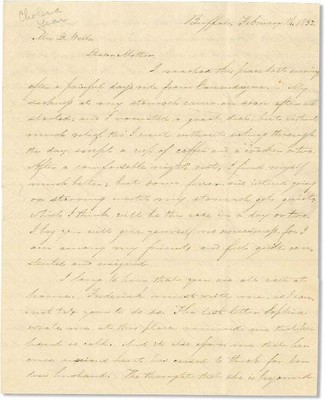 Cholera
Buffalo, February 16, 1832
Mrs. D. Wells
Dear Mother
I reached this place last evening
after a painful days ride from Canandaigua. My
at my stomach came on soon after we
started, and I vomited a great deal, but without
much relief. I went without eating through
the day except a cup of coffee and a cracker
After a comfortable nights rest, I find myself
much better, but some fever and intend going
on starving until my stomach gets quiet,
which I think will be the case in a day or two.
I beg you will give yourself no uneasiness, for I
am among my friends and feel quite con-
tented and
I long to hear that you are all well at
home. Frederick must write me, as I can
not you to do so. The last letter Sophia
wrote me at this place reminds me that her
heart is cold. And it also assures me that her
heart has ceased to throb for her
dear husband. The thought that she is beyond